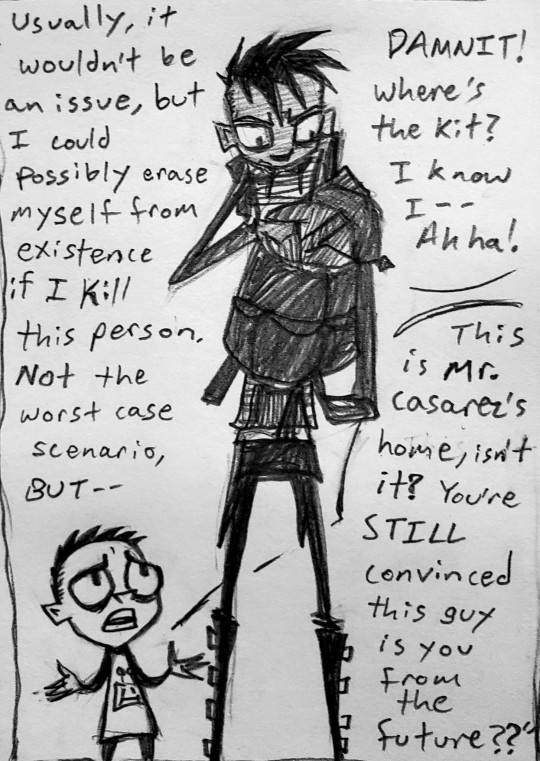 Usually, it
wouldn't be
an issue, but
I could
possibly erase
myself from
existence
if I kill
this person.
Not the
worst case
scenario,
BUT--
DAMNIT!
Where's
the kit?
I know
I--
Ahha!
This
is Mr.
Casarez's
home, isn't
it? You're
STILL
convinced
this guy
is you
from
the
future??"